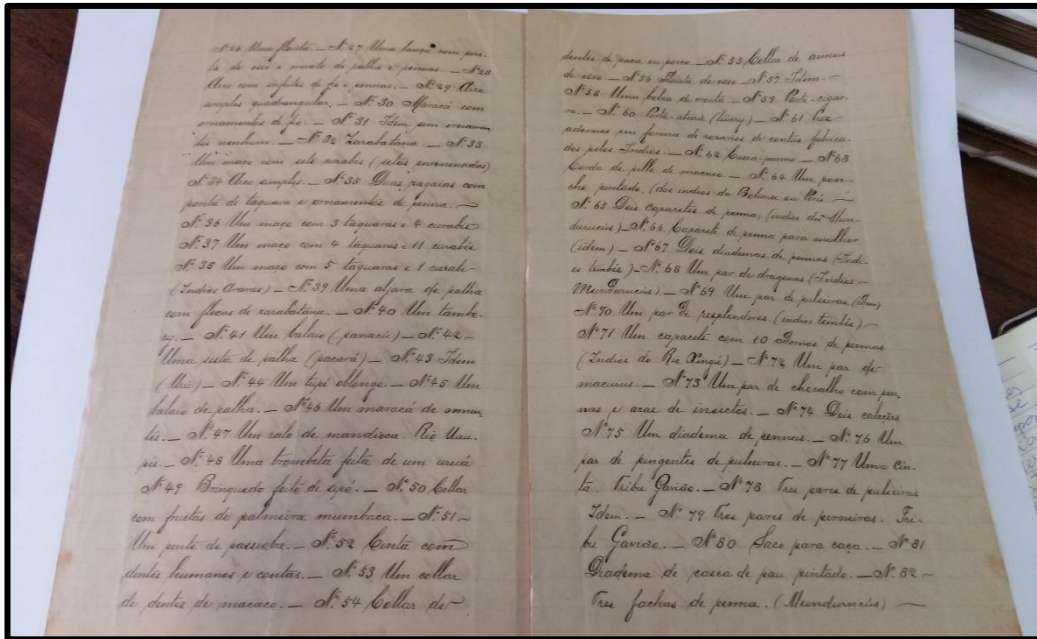 Nº 26 Uma flauta. — Nº 27 Uma lança com pon-
ta de osso e ornato de palha e pennas. — Nº 28
Arco com enfeites de fio e pennas. — Nº 29 Arco
simples quadrangular. — Nº 30 Maracá com
ornamentos de fio. — Nº 31 Idem sem ornamen-
tos nenhum. — Nº 32 Zarabatana. — Nº 33
Um maço com sete curabis (setas envenenadas)
Nº 34 Arco simples. — Nº 35 Duas zagaias com
ponta de taquara e ornamentos de penna. —
Nº 36 Um maço com 3 taquaras e 4 curabis
Nº 37 Um maço com 4 taquaras e 11 curabis
Nº 38 Um maço com 5 taquaras e 1 curabi
(Indios Araras) — Nº 39 Uma aljava de palha
com flexas de zarabatana. — Nº 40 Um tambo-
Nº 41 Um balaio (panacú) — Nº 42 —
Uma cesta de palha (pacará) — Nº 43 Idem
Nº 44 Um tupé oblongo. — Nº 45 Um
balaio de palha. — Nº 46 Um maracá de
Nº 47 Um ralo de mandioca. Rio Uau-
pés. — Nº 48 Uma trombeta feita de um
Nº 49 Brinquedo feito de cipó. — Nº 50 Collar
com fructos de palmeira mumbaca. — Nº 51 —
Um pente de passiuba. — Nº 52 Cinta com
dentes humanos e contas. — Nº 53 Um collar
de dentes de macaco. — Nº 54 Collar de
dentes de paca ou porco. — Nº 55 Collar de anneis
de osso — Nº 56 Flauta de osso — Nº 57 Idem. —
Nº 58 Uma bolsa de — Nº 59 Porta-cigar-
Nº 60 — Nº 61 Tres
adornos em forma de rosarios de contas fabrica-
das pelos Indios. — Nº 62 — Nº 63
Corda de pelle de macaco. — Nº 64 Um pon-
che pintado, (dos indios da Bolivia ou Perú —
Nº 65 Dois capacetes de penna, (indios dos Mun-
durucús) — Nº 66 Capacete de penna para mulher
(idem) — Nº 67 Dois diademas de pennas (Indi-
os tembés) — Nº 68 Um par de dragonas (Indios
Mundurucús) — Nº 69 Um par de pulseiras (idem)
Nº 70 Um par de resplendores (indios tembés) —
Nº 71 Um capacete com 10 adornos de pennas
(Indios do Rio Xingú) — Nº 72 Um par de
macurus. — Nº 73 Um par de chocalho com pen-
nas e azas de insectos. — Nº 74 Dois calções
Nº 75 Um diadema de pennas. — Nº 76 Um
par de pingentes de pulseiras. — Nº 77 Uma cin-
ta. Tribu Gavião. — Nº 78 Tres pares de pulseiras
Idem. — Nº 79 Tres pares de perneiras. Tri-
bu Gavião. — Nº 80 Saco para caça. — Nº 81
Diadema de casca de pau pintado. — Nº 82 —
Tres fachas de penna. (Mundurucús) —